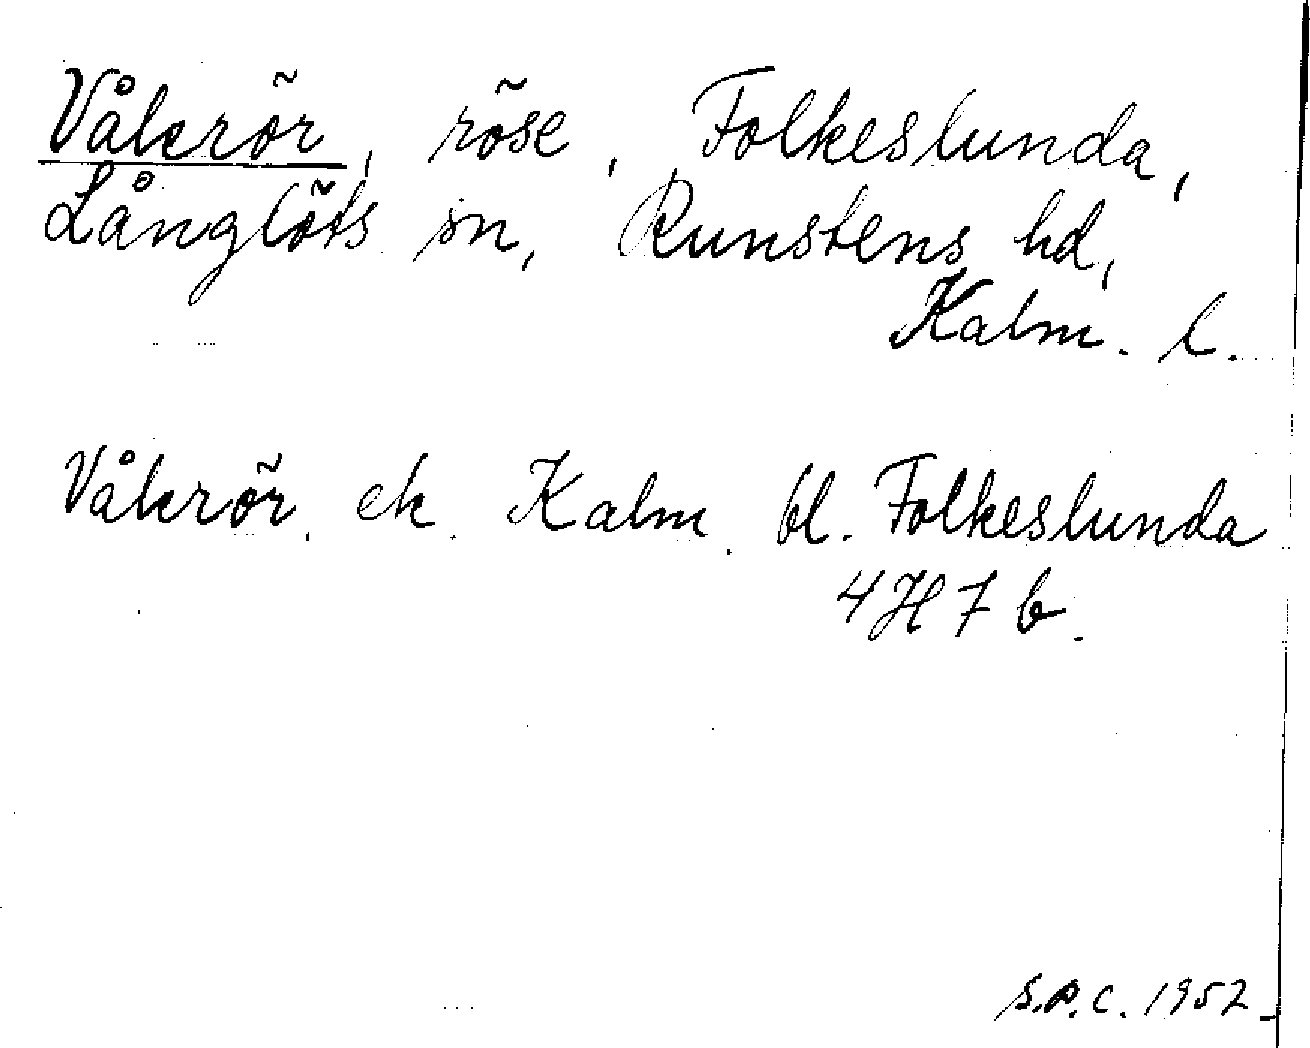 Våkrör, röse, Folkeslunda,
Långlöts sn, Runstens hd,
Kalm. l.
Våkrör, ek. Kalm. bl. Folkeslunda
4H7b.
S.P.C. 1952